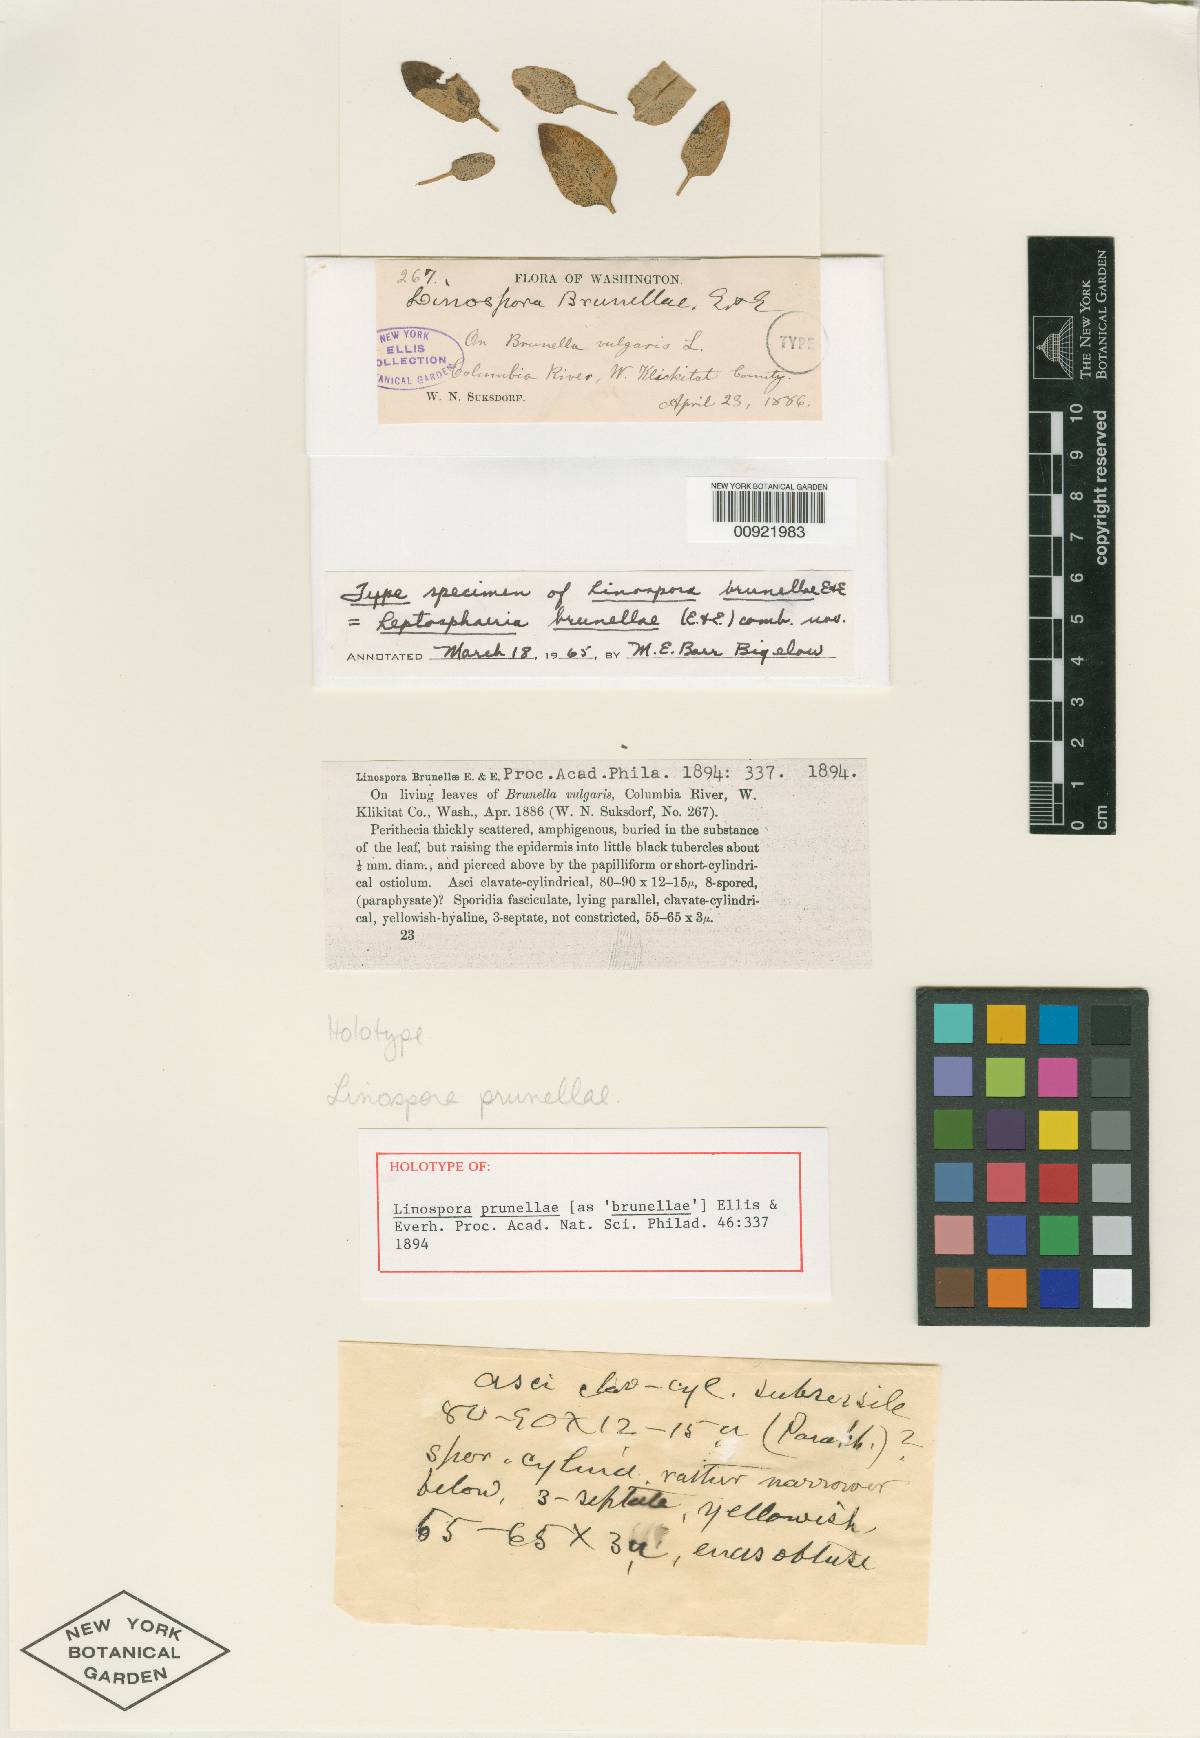 267.
FLORA OF WASHINGTON.
Linospora Brunellae. E & E
On Brunella vulgaris L.
Columbia River, W. Klickitat County.
W. N. SUKSDORF.
April 23, 1886.
NEW YORK
ELLIS
COLLECTION
BOTANICAL GARDEN
TYPE
NEW YORK BOTANICAL GARDEN
00921983
Type specimen of Linospora brunellae E&E
= Leptosphaeria brunellae (E.&E.) comb. nov.
ANNOTATED March 18, 1965, BY M. E. Barr Bigelow
Linospora Brunellæ E. & E. Proc.Acad.Phila. 1894: 337. 1894.
On living leaves of Brunella vulgaris, Columbia River, W.
Klikitat Co., Wash., Apr. 1886 (W. N. Suksdorf, No. 267).
Perithecia thickly scattered, amphigenous, buried in the substance
of the leaf, but raising the epidermis into little black tubercles about
½ mm. diam., and pierced above by the papilliform or short-cylindri-
cal ostiolum. Asci clavate-cylindrical, 80–90 x 12–15µ, 8-spored,
(paraphysate)? Sporidia fasciculate, lying parallel, clavate-cylindri-
cal, yellowish-hyaline, 3-septate, not constricted, 55–65 x 3µ.
23
Holotype
Linospora prunellae.
HOLOTYPE OF:
Linospora prunellae [as 'brunellae'] Ellis &
Everh. Proc. Acad. Nat. Sci. Philad. 46:337
1894
asci clav-cyl. subsessile
80-90 X 12-15 µ (Paraph.)?
spor. cylind. rather narrower
below, 3-septate, yellowish,
55-65 X 3µ, ends obtuse
NEW YORK
BOTANICAL
GARDEN
THE NEW YORK
BOTANICAL GARDEN
copyright reserved
cm
0 1 2 3 4 5 6 7 8 9 10